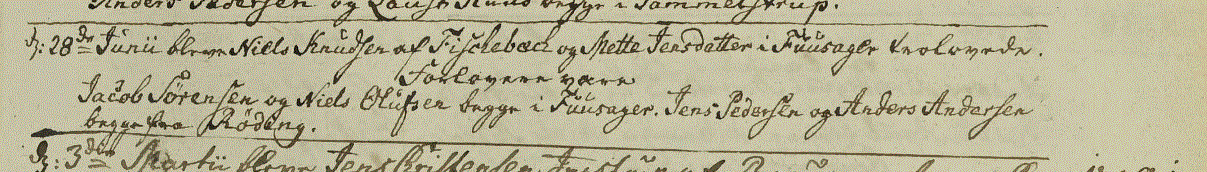 Anders Pedersen og Laust Knud begge i Tammelstrup.
d: 28de Junii bleve Niels Knudsen af Fischebæch og Mette Jensdatter i Fuusager trolovede.
Forlovere vare
Jacob Sørensen og Niels Olufsen begge i Fuusager. Jens Pedersen og Anders Andersen
begge fra Røding.
d: 3die Martii bleve Jens Christensen